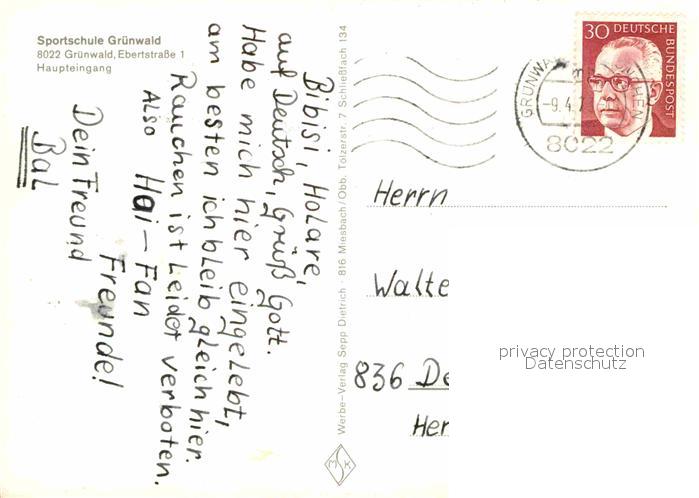 Sportschule Grünwald
8022 Grünwald, Ebertstraße 1
Haupteingang
Bibisi, Holare,
auf Deutsch, Grüß Gott.
Habe mich hier eingelebt,
am besten ich bleib gleich hier.
Rauchen ist Leider verboten.
Also
Hai-Fan
Freunde!
Dein Freund
Bal
Werbe-Verlag Sepp Dietrich · 816 Miesbach/Obb. Tölzerstr. 7 Schließfach 134
MSK
30 DEUTSCHE
BUNDESPOST
GRÜNWA
CHEN
-9.4.7
8022
Herrn
Walte
836 De
Her
privacy protection
Datenschutz